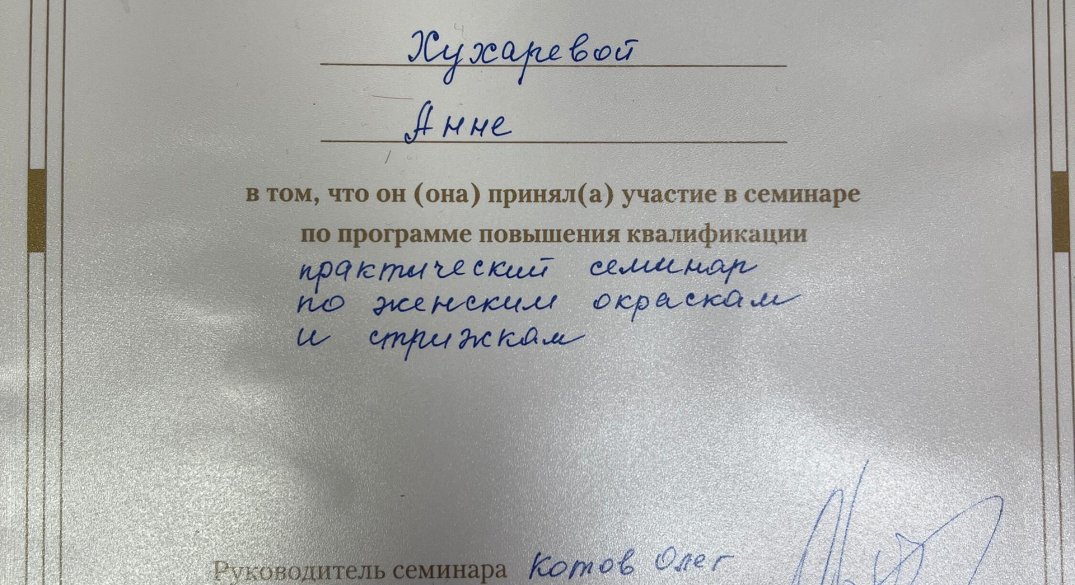 Хухаревой
Анне
в том, что он (она) принял(а) участие в семинаре
по программе повышения квалификации
практический семинар
по женским окраскам
и стрижкам
Руководитель семинара Котов Олег